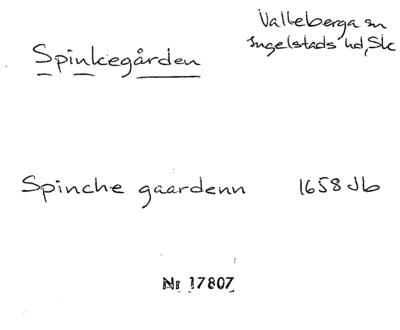 Valleberga sn
Ingelstads hd, Sk
Spinkegården
Spinche gaardenn 1658 Jb
Nr 17807